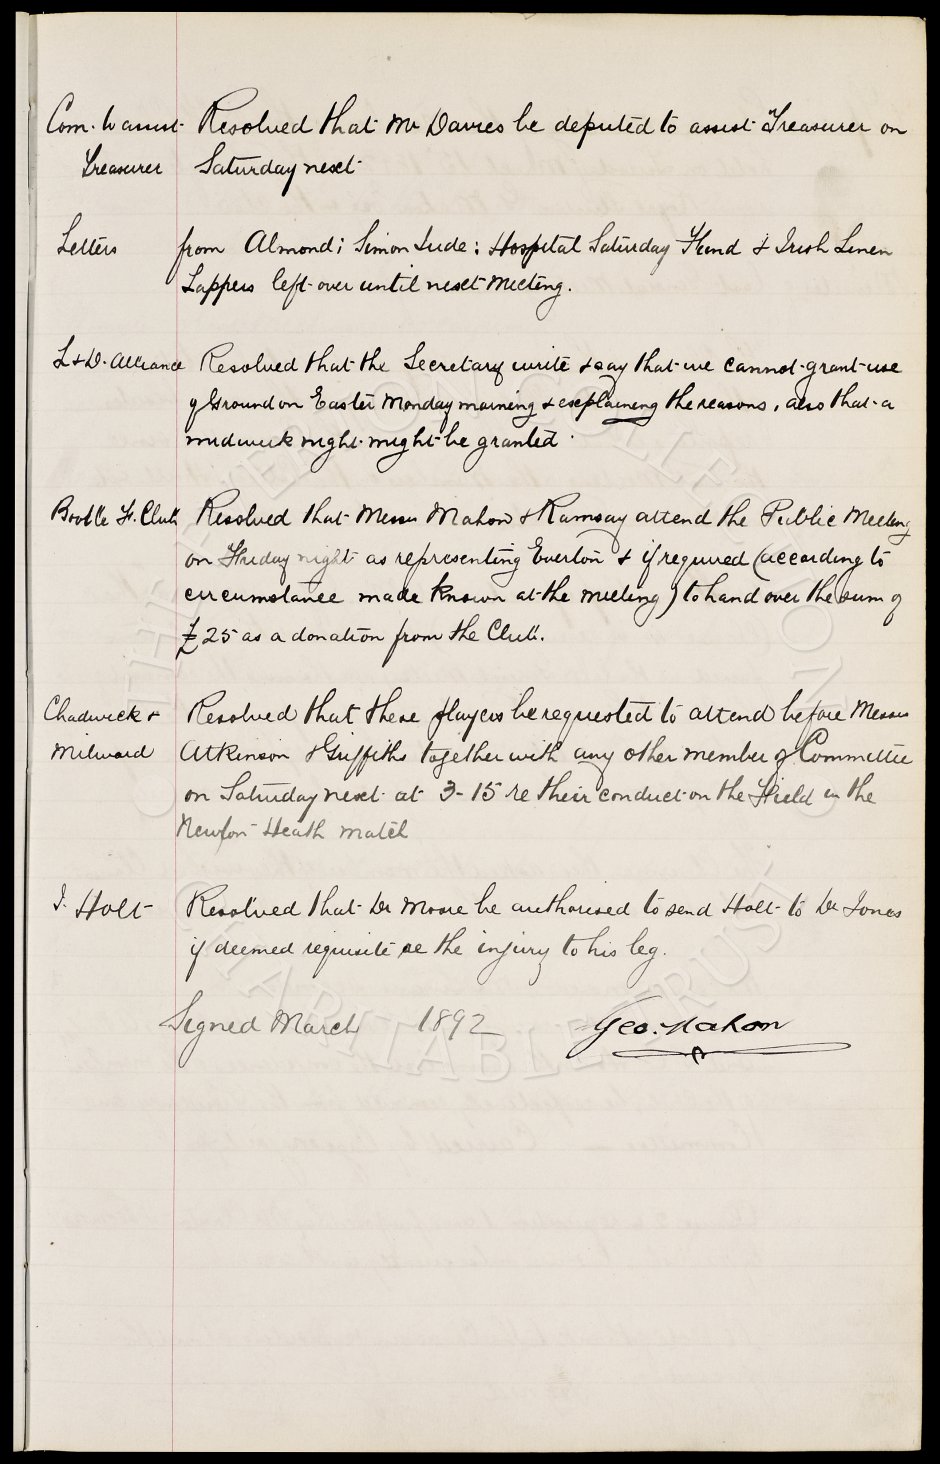 Com. to assist Resolved that Mr Davies be deputed to assist Treasurer on
Treasurer Saturday next
Letters from Almond; Simon Jude; Hospital Saturday Fund & Irish Linen
Lappers left over until next Meeting.
L & D. Alliance Resolved that the Secretary write & say that we cannot grant use
of Ground on Easter Monday morning & explaining the reasons, also that a
midweek night might be granted.
Bootle F. Club Resolved that Messrs Mahon & Ramsay attend the Public Meeting
on Friday night as representing Everton & if required (according to
circumstance made known at the meeting) to hand over the sum of
£25 as a donation from the Club.
Chadwick & Resolved that these players be requested to attend before Messrs
Milward Atkinson & Griffiths together with any other member of Committee
on Saturday next at 3-15 re their conduct on the Field in the
Newton Heath match
J. Holt Resolved that Dr Moore be authorised to send Holt to Dr Jones
if deemed requisite re the injury to his leg.
Signed March 1892 Geo. Mahon
EVERTON COLLECTION
CHARITABLE TRUST